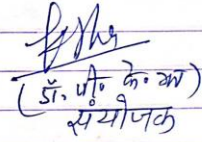 (डॉ. पी. के. झा)
संयोजक